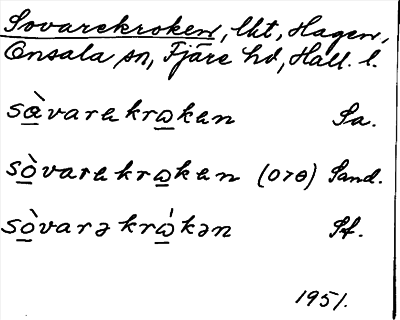 Sovarekroken, lht, Hagen,
Onsala sn, Fjäre hd, Hall. l.
sàvarekrωken Sa.
sòvarekrωken (o>ɵ) Sand.
sòvarəkrω̍kən Sf.
1951.